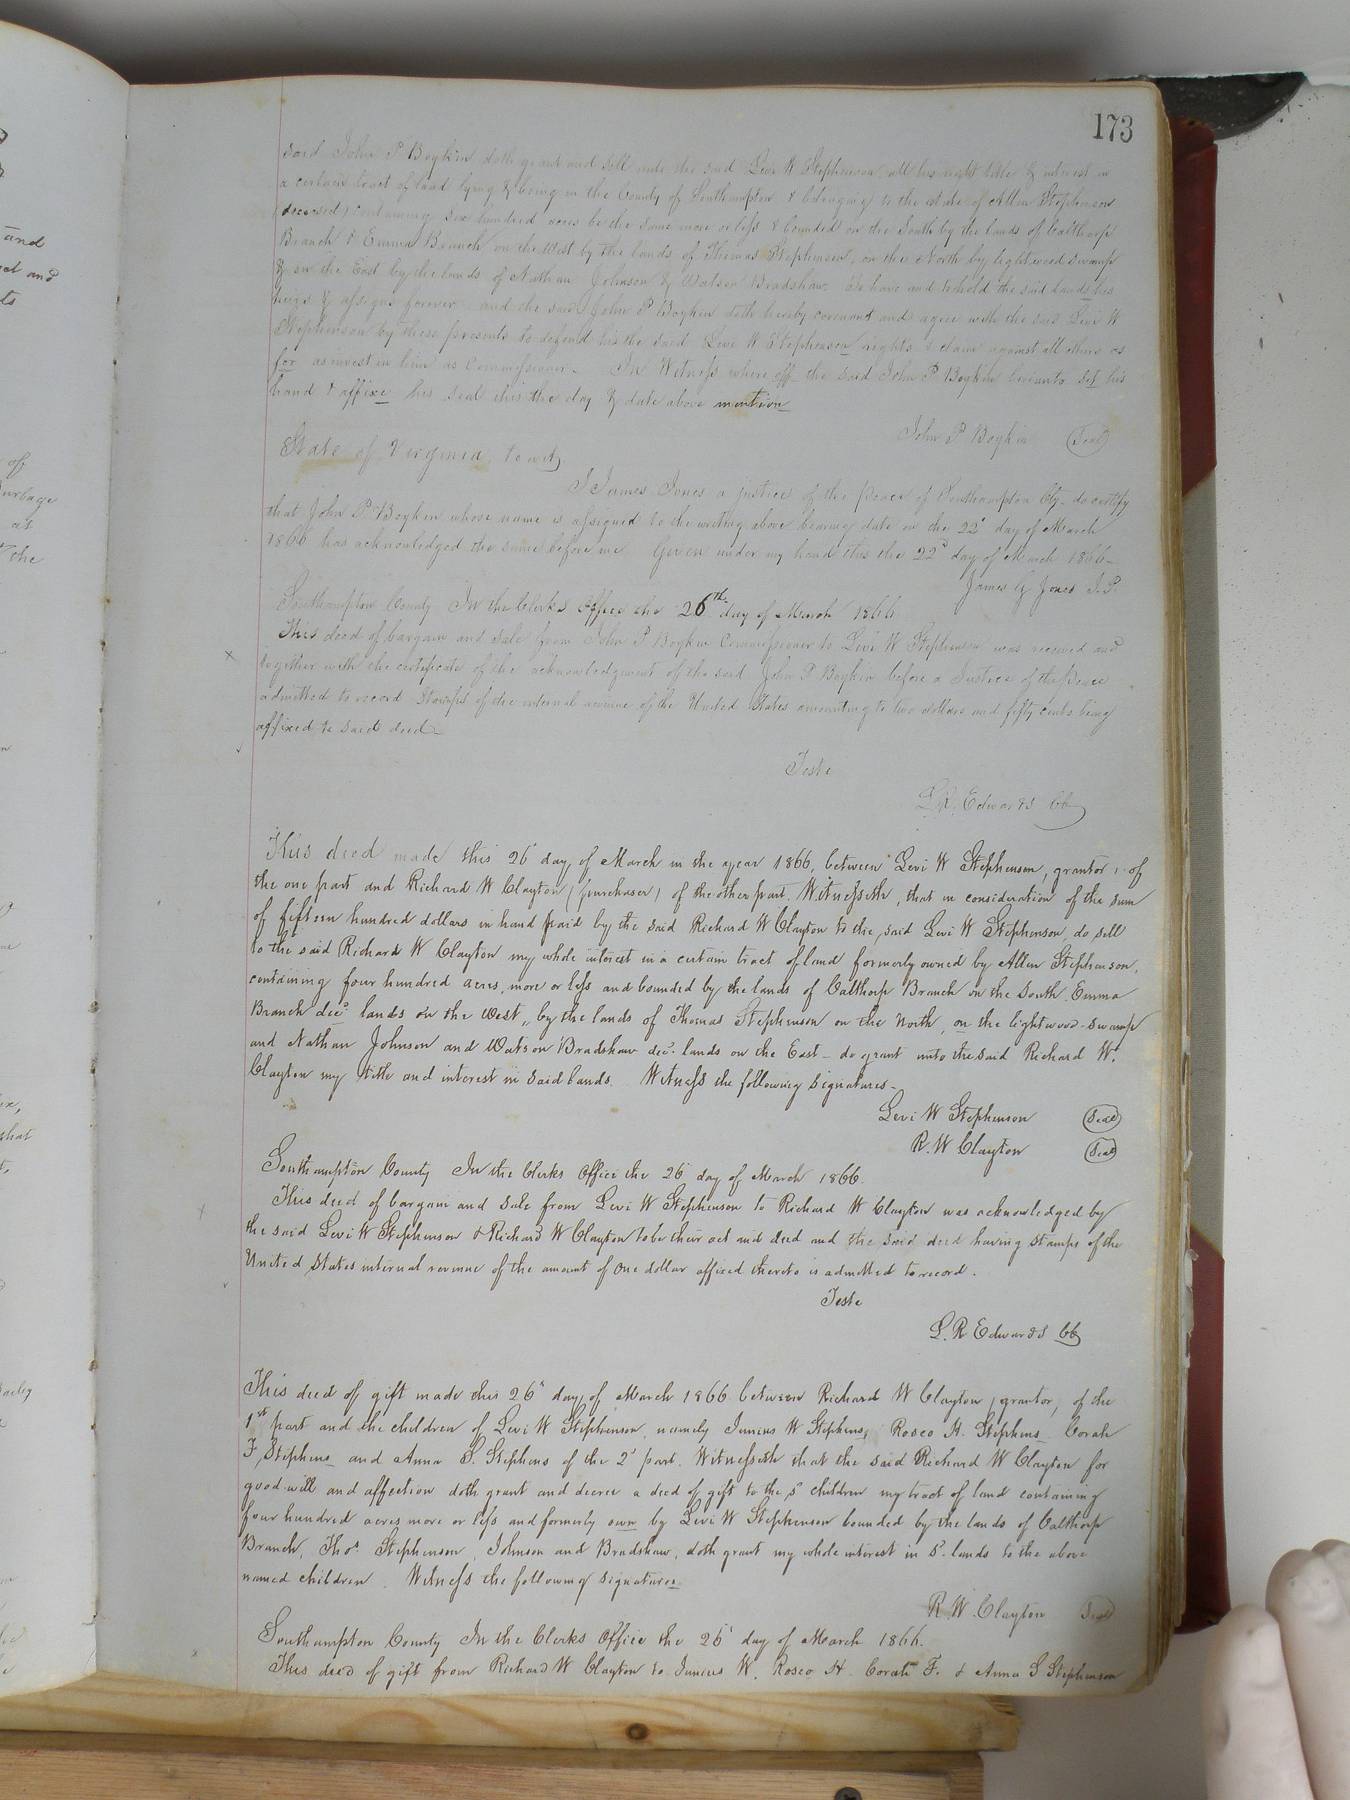 173
said John P Boykin doth grant and sell unto the said Levi W Stephenson all his right title & interest in
a certain tract of land lying & being in the County of Southampton & belonging to the estate of Allen Stephenson
(deceased) containing six hundred acres be the same more or less & bounded on the South by the lands of Calthorp
Branch & Emma Branch on the West by the lands of Thomas Stephenson, on the North by lightwood swamp
& on the East by the lands of Nathan Johnson & Watson Bradshaw. To have and to hold the said lands his
heirs & assigns forever and the said John P Boykin doth hereby covenant and agree with the said Levi W
Stephenson by these presents to defend his the said Levi W Stephenson rights & claim against all others as
for as invest in him as Commissioner. In Witness where off the said John P Boykin hereunto set his
hand & affixe his seal this the day & date above mention
John P Boykin (Seal)
State of Virginia, to wit,
I James Jones a justice of the peace of Southampton Cty. do certify
that John P Boykin whose name is assigned to the writing above bearing date on the 22d day of March
1866 has acknowledged the same before me. Given under my hand this the 22d day of March 1866-
James Jones J.P.
Southampton County In the Clerks Office the 26th day of March 1866
This deed of bargain and sale from John P Boykin Commissioner to Levi W Stephenson was received and
together with the certificate of the acknowledgment of the said John P Boykin before a Justice of the Peace
admitted to record Stamps of the internal revenue of the United States amounting to two dollars and fifty cents being
affixed to said deed-
Teste
L.R. Edwards CC
This deed made this 26" day of March in the year 1866, between Levi W Stephenson, grantor, of
the one part and Richard W Clayton (purchaser) of the other part. Witnesseth, that in consideration of the sum
of fifteen hundred dollars in hand paid by the said Richard W Clayton to the said Levi W Stephenson, do sell
to the said Richard W Clayton my whole interest in a certain tract of land formerly owned by Allen Stephenson,
containing four hundred acres, more or less and bounded by the lands of Calthorp Branch on the South, Emma
Branch decd. lands on the West, by the lands of Thomas Stephenson on the North, on the lightwood-swamp
and Nathan Johnson and Watson Bradshaw dec. lands on the East- do grant unto the said Richard W.
Clayton my title and interest in said lands. Witness the following signatures-
Levi W Stephenson (Seal)
R. W Clayton (Seal)
Southampton County In the Clerks Office the 26 day of March 1866.
This deed of bargain and sale from Levi W Stephenson to Richard W Clayton was acknowledged by
the said Levi W Stephenson & Richard W Clayton to be their act and deed and the said deed having stamps of the
United States internal revenue of the amount of one dollar affixed thereto is admitted to record.
Teste
L. R Edwards CC
This deed of gift made this 26" day of March 1866 between Richard W Clayton, grantor, of the
1st part and the children of Levi W Stephenson, namely Junius W Stephens, Rosco H. Stephens Corah
F, Stephens and Anna S. Stephens of the 2d part. Witnesseth that the said Richard W Clayton for
good-will and affection doth grant and decree a deed of gift to the sd children my tract of land containing
four hundred acres more or less and formerly own by Levi W Stephenson bounded by the lands of Calthorp
Branch, Thos. Stephenson, Johnson and Bradshaw, doth grant my whole interest in sd. lands to the above
named children. Witness the following signatures
R. W. Clayton Seal
Southampton County In the Clerks Office the 26" day of March 1866.
This deed of gift from Richard W Clayton to Junius W. Rosco H. Corah F. & Anna S Stephenson